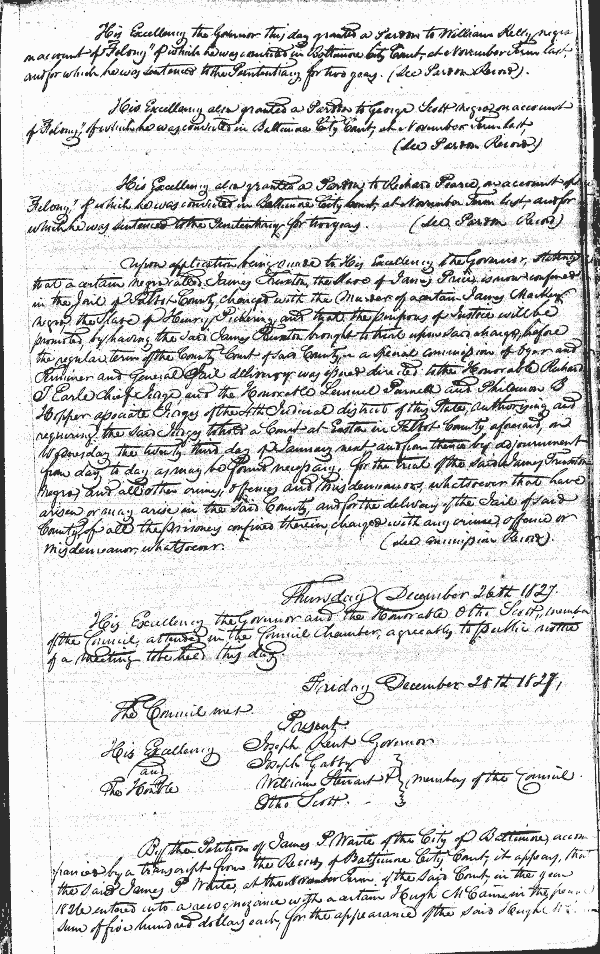 His Excellency the Governor this day granted a Pardon to William Kelly, negro
on account of "Felony" of which he was convicted in Baltimore City Court, at November Term last,
and for which he was sentenced to the Penitentiary for two years. (See Pardon Record).
His Excellency also granted a Pardon to George Scott negro, on account
of Felony," of which he was convicted in Baltimore City Court, at November Term last,
(See Pardon Record)
His Excellency also granted a Pardon, to Richard Pearce, on account of
Felony," of which he was convicted in Baltimore City Court, at November Term last and for
which he was sentenced to the Penitentiary, for two years. (See Pardon Record)
Upon application being made to His Excellency the Governor, stating
that a certain negro called James Truxton, the Slave of James Price, is now confined
in the Jail of Talbot County, charged with the Murder of a certain James Mackey
negro, the Slave of Henry Pickering, and that the purposes of Justice will be
promoted, by having the said James Truxton, brought to trial upon said charge, before
the regular term of the County Court of said County, a special commission of Oyer and
Terminer and General Jail delivery was issued directed to the Honorable Richard
T Earle Chief Judge, and the Honorable Lemuel Purnell and Philemon B
Hopper associate Judges of the 4th Judicial district of this State, authorising and
requiring the said Judges to hold a Court at Easton in Talbot County aforesaid, on
Wednesday the twenty third day of January next and from thence by adjournment
from day to day as may be found necessary, for the trial of the said James Truxton
negro, and all other crimes, offences and misdemeanors, whatsoever that have
arisen or may arise in the said County, and for the delivery of the Jail of said
County, of all the prisoners confined therein, charged with any crime, offence or
misdemeanor, whatsoever. (See Commission Record).
Thursday December 26th 1827.
His Excellency the Governor and the Honorable Otho Scott, member
of the Council, attended in the Council Chamber, agreeably to public notice
of a meeting to be held this day
Friday December 28th 1827,
The Council met
Present.
His Excellency Joseph Kent Governor
and Joseph Gabby
The Honble William Stewart & members of the Council.
Otho Scott.
By the Petition of James P. Waite of the City of Baltimore, accom
panied by a transcript from the Record of Baltimore City Court, it appears, that
the said James P. Waite, at the November Term of the said Court in the year
1826 entered into a recognizance with a certain Hugh McCann in the
sum of five hundred dollars each, for the appearance of the said Hugh